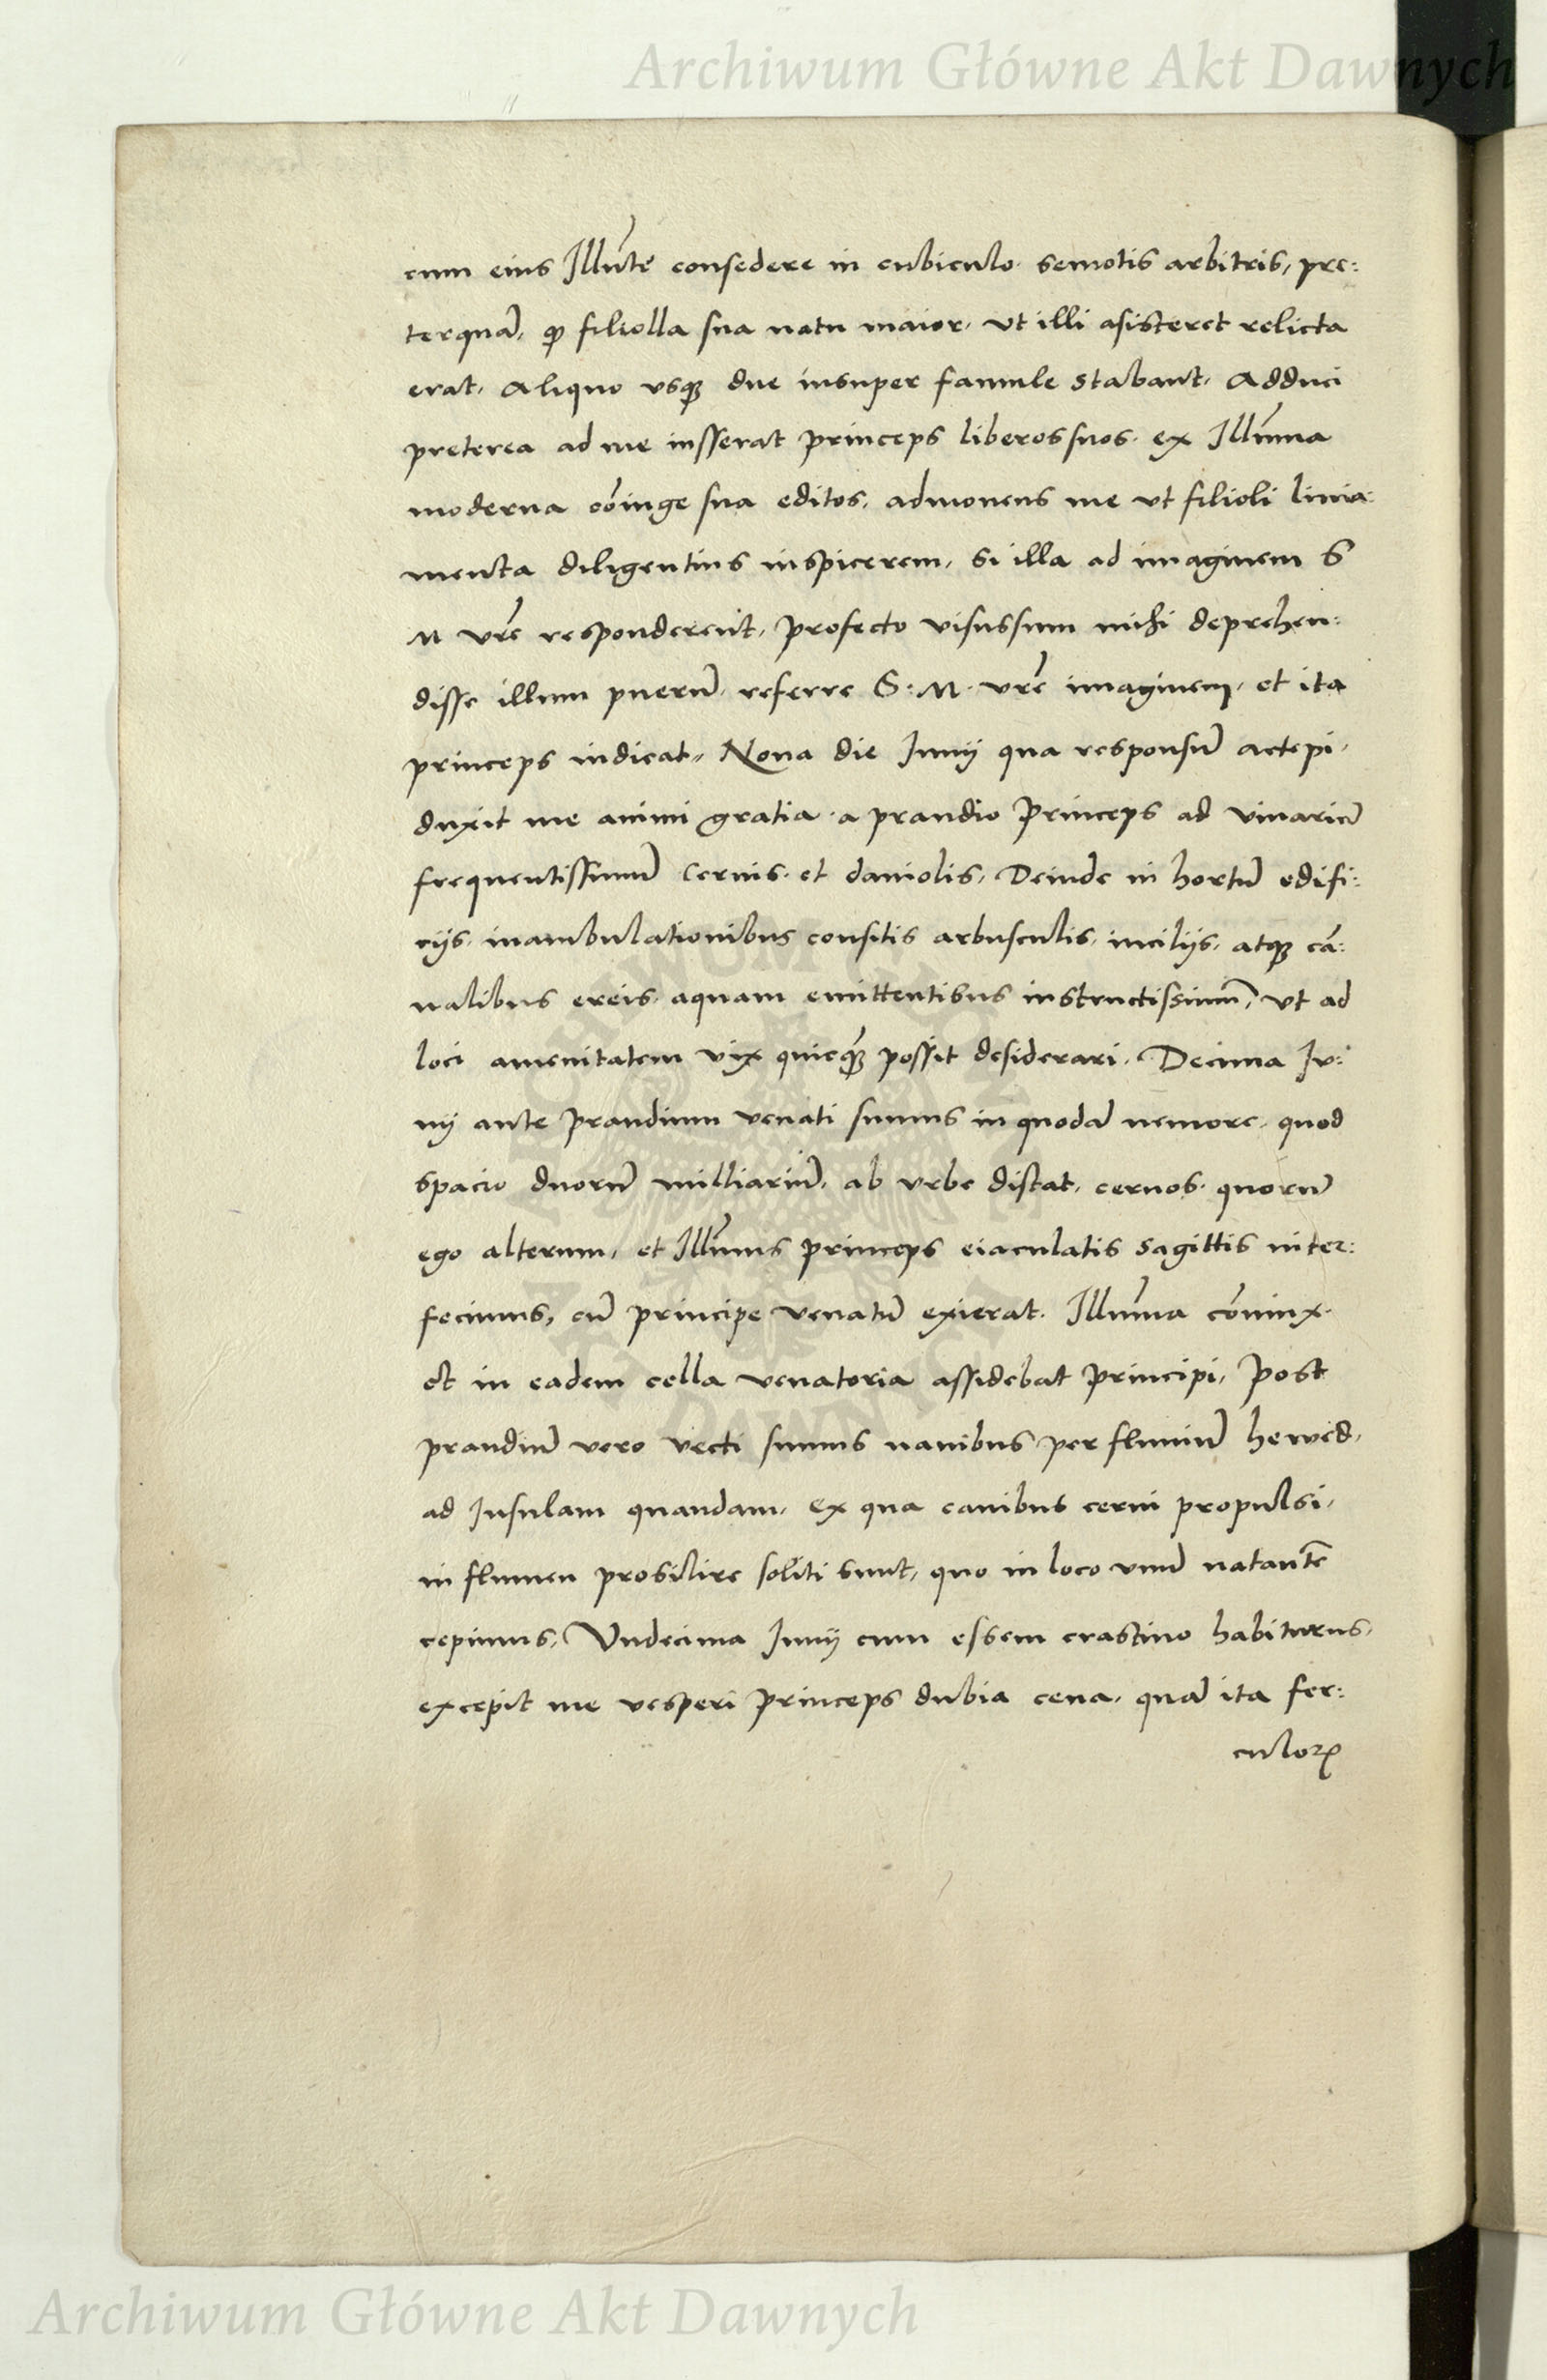 Archiwum Główne Akt Dawnych
cum eius Illu̅te̅ consedere in cubiculo· semotis arbitris, pre:
terqua̅, ꝙ filiolla sua natu maior, vt illi asisteret relicta
erat, Aliquo vsqꝫ due insuper famule stabant, Adduci
preterea ad me iusserat princeps liberos suos· ex Illu̅ma
moderna co̅iuge sua editos, admonens me vt filioli linia:
menta diligentius inspicerem, si illa ad imaginem S
M vr̅e responderent, profecto visus sum mihi deprehen:
disse illum pueru̅, referre S: M· vr̅e imaginem, et ita
princeps iudicat, Nona die Junij qua responsu̅ accepi,
duxit me animi gratia· a prandio princeps ad viuariu̅
frequentissimu̅ ceruis· et damolis, Deinde in hortu̅ edifi:
cijs· inambulationibus consitis arbusculis, incilijs, atqꝫ ca̅:
nalibus ereis· aquam emittentibus instructissimu̅, vt ad
loci amenitatem vix quicqꝫ possit desiderari, Decima Ju:
nij ante prandium venati sumus in quoda̅ nemore, quod
spacio duoru̅ milliariu̅, ab vrbe distat, ceruos· quoru̅
ego alterum, et Illu̅mus princeps eiaculatis sagittis inter:
fecimus, cu̅ principe venatu̅ exierat· Illu̅ma co̅niux·
et in eadem cella venatoria assidebat principi, Post
prandiu̅ vero vecti sumus nauibus per fluuiu̅ hewed,
ad Insulam quandam, ex qua canibus cerui propulsi,
in flumen prosilire soliti sunt, quo in loco vnu̅ natante̅
cepimus, Vndecima Junij cum essem crastino habiturus,
excepit me vesperi princeps dubia cena, qua̅ ita fer:
culoꝝ
ARCHIWUM GŁÓWNE AKT DAWNYCH
Archiwum Główne Akt Dawnych